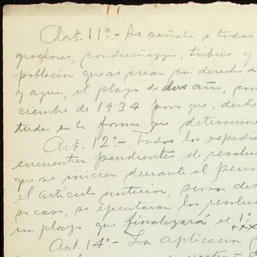 Art. 11º.- Se señala a todas
grociones, condueñazgos, tribus y
población que se crean con derecho de
y aguas, el plazo de dos años, con
ciembre de 1934 para que, dentro
tuda en la forma que determina
Art. 12º.- Todos los expedi
encuentren pendientes de resoluc
que se inicien durante el peri
el artículo anterior, serán des
su caso, se ejecutarán las resoluc
un plazo que finalizará el 1º
Art. 14º.- La aplicación